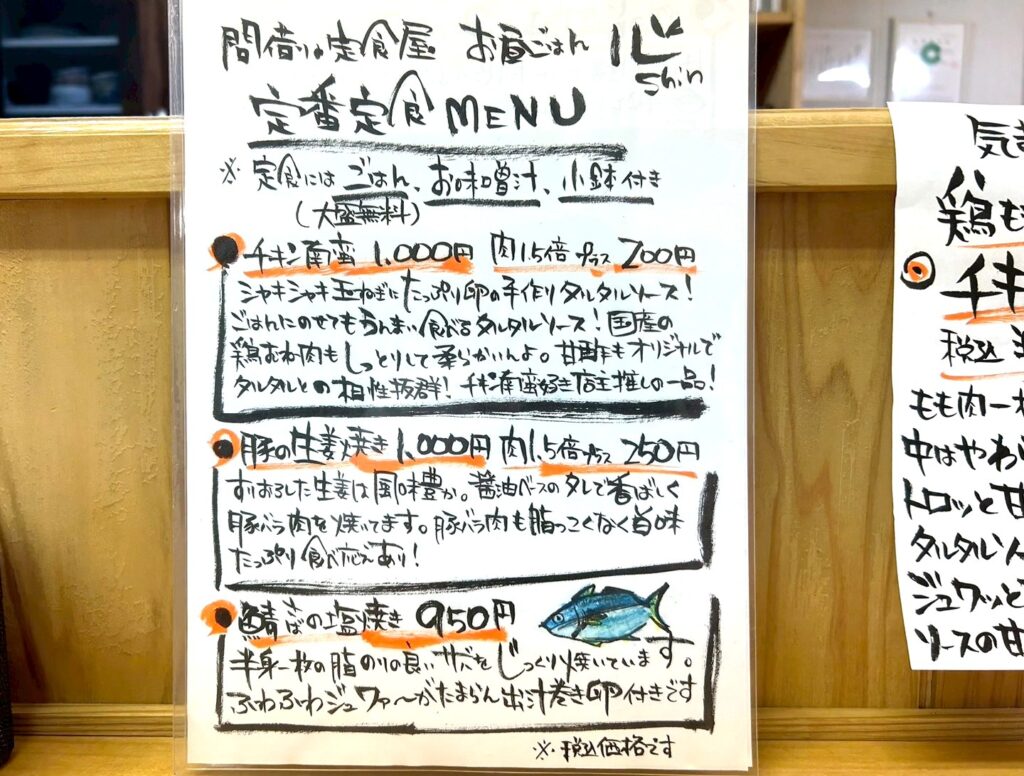 間借りの定食屋 お昼ごはん 心
shin
定番定食 MENU
※定食にはごはん、お味噌汁、小鉢付き
(大盛無料)
チキン南蛮 1,000円 肉1.5倍プラス200円
シャキシャキ玉ねぎにたっぷり卵の手作りタルタルソース!
ごはんにのせてもうんまい食べるタルタルソース!国産の
鶏むね肉もしっとりして柔らかいんよ。甘酢もオリジナルで
タルタルとの相性抜群!チキン南蛮好き店主推しの一品!
豚の生姜焼き 1,000円 肉1.5倍プラス 250円
すりおろした生姜は風味豊か。醤油ベースのタレで香ばしく
豚バラ肉を焼いてます。豚バラ肉も脂っこくなく旨味
たっぷり食べ応えあり!
鯖さばの塩焼き 950円
半身一枚の脂のりの良いサバをじっくり焼いています。
ふわふわジュワァ〜がたまらん出汁巻き卵付きです
※税込価格です
気
鶏もも
チキ
税込
もも肉一枚
中はやわ
トロッと甘
タルタルソ
ジュワッと
ソースの甘